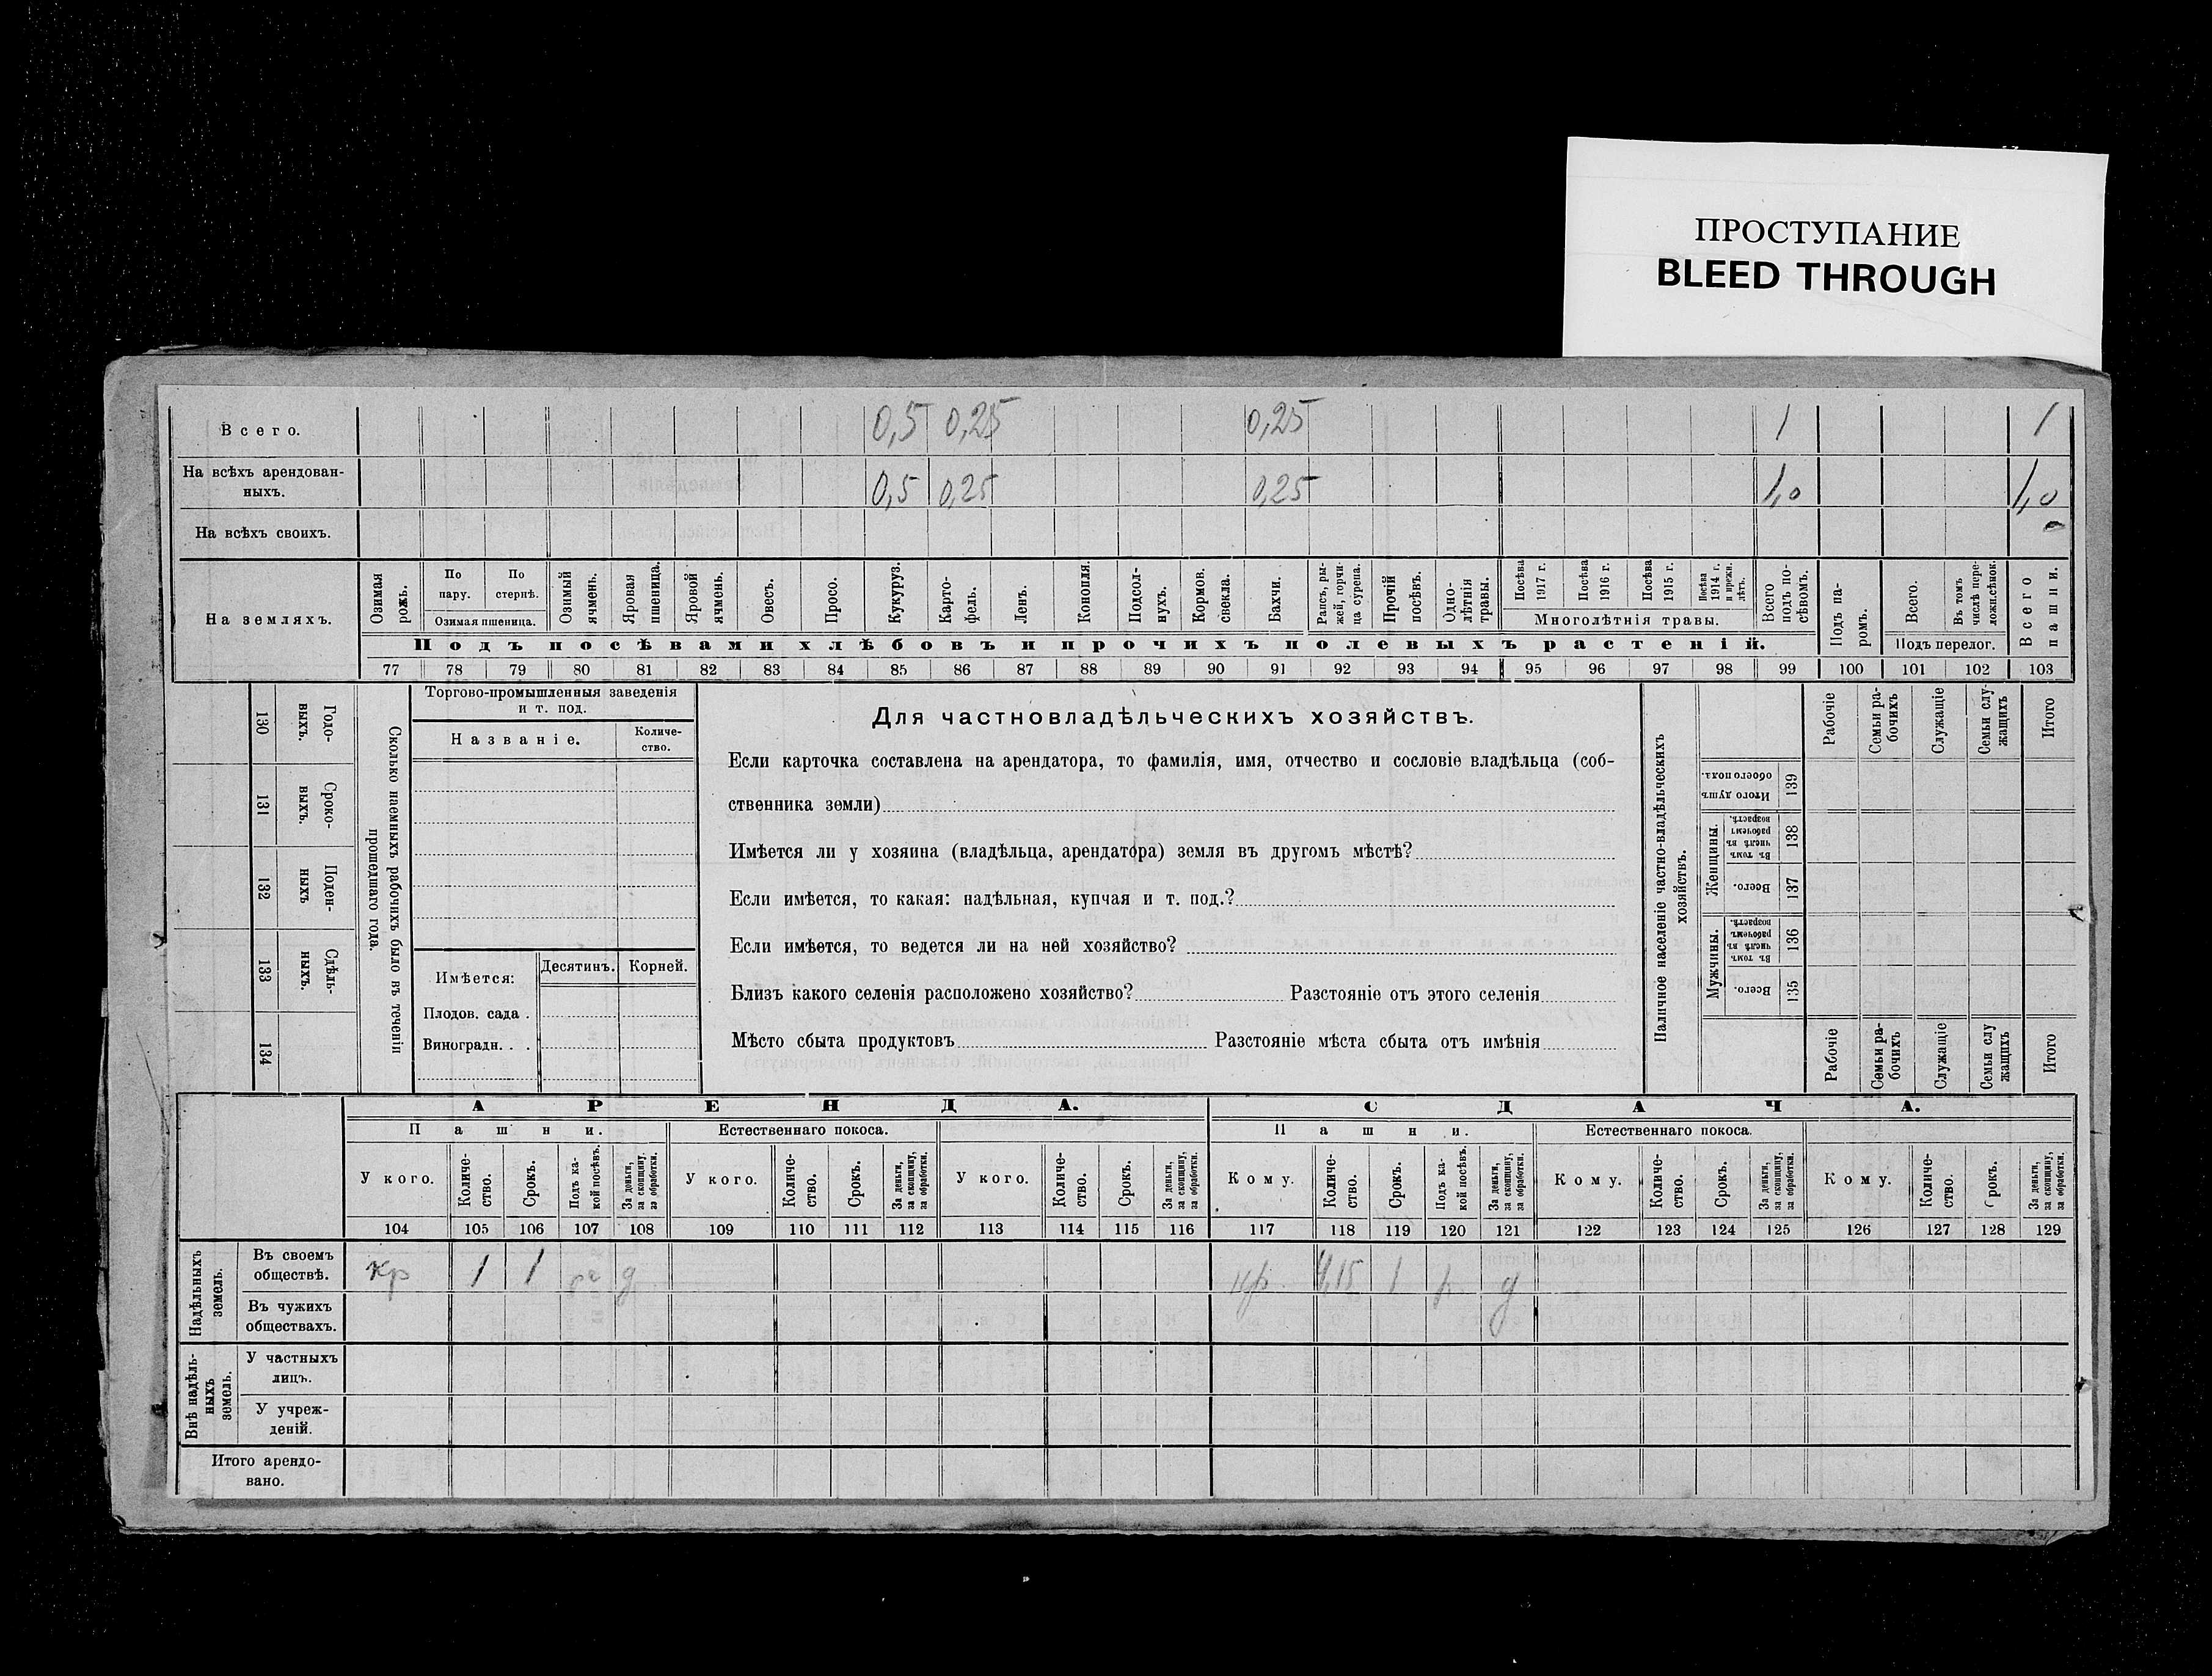 ПРОСТУПАНИЕ
BLEED THROUGH
Всего. 0,5 0,25 0,25 1 1
На всѣхъ арендован-
ныхъ. 0,5 0,25 0,25 1,0 1,0
На всѣхъ своихъ.
На земляхъ.
Озимая рожь.
По пару.
По стернѣ.
Озимая пшеница.
Озимый ячмень.
Яровая пшеница.
Яровой ячмень.
Овесъ.
Просо.
Кукуруз.
Карто-
фель.
Ленъ.
Конопля.
Подсол-
нухъ.
Кормов. свекла.
Бахчи.
Рапсъ, ры-
жей, горчи-
ца сурепа.
Прочій посѣвъ.
Одно-
лѣтнія травы.
Посѣва 1917 г.
Посѣва 1916 г.
Посѣва 1915 г.
Посѣва 1914 г. и прежн. лѣтъ.
Многолѣтнія травы.
Всего подъ по-
сѣвомъ.
Подъ па-
ромъ.
Всего.
Въ томъ числѣ пере-
ложн.сѣнок.
Подъ перелог.
Всего пашни.
Подъ посѣвами хлѣбовъ и прочихъ полевыхъ растеній.
77 78 79 80 81 82 83 84 85 86 87 88 89 90 91 92 93 94 95 96 97 98 99 100 101 102 103
130 Годо-
выхъ.
131 Сроко-
выхъ.
132 Поден-
ныхъ
133 Сдѣль-
ныхъ.
134
Сколько наемныхъ рабочихъ было въ теченіи
прошедшаго года.
Торгово-промышленныя заведенія
и т. под.
Названіе.
Количе-
ство.
Имѣется: Десятинъ. Корней.
Плодов. сада .
Виноградн. . .
Для частновладѣльческихъ хозяйствъ.
Если карточка составлена на арендатора, то фамилія, имя, отчество и сословіе владѣльца (соб-
ственника земли)
Имѣется ли у хозяина (владѣльца, арендатора) земля въ другомъ мѣстѣ?
Если имѣется, то какая: надѣльная, купчая и т. под.?
Если имѣется, то ведется ли на ней хозяйство?
Близъ какого селенія расположено хозяйство? Разстояніе отъ этого селенія
Мѣсто сбыта продуктовъ Разстояніе мѣста сбыта отъ имѣнія
Наличное населеніе частно-владѣльческихъ
хозяйствъ.
Рабочіе
Семьи ра-
бочихъ
Служащіе
Семьи слу-
жащихъ
Итого
Итого душъ обоего пола. 139
Женщины.
Въ томъ числѣ въ рабочемъ возрастѣ. 138
Всего. 137
Мужчины.
Въ томъ числѣ въ рабочемъ возрастѣ. 136
Всего. 135
Рабочіе
Семьи ра-
бочихъ
Служащіе
Семьи слу
жащихъ
Итого
АРЕНДА. СДАЧА.
Пашни. Естественнаго покоса. Пашни. Естественнаго покоса.
У кого.
Количе-
ство.
Срокъ.
Подъ ка-
кой посѣвъ.
За деньги, за скопщину, за обработки.
У кого.
Количе-
ство.
Срокъ.
За деньги, за скопщину, за обработки.
У кого.
Количе-
ство.
Срокъ.
За деньги, за скопщину, за обработки.
Кому.
Количе-
ство.
Срокъ.
Подъ ка-
кой посѣвъ.
За деньги, за скопщину, за обработки.
Кому.
Количе-
ство.
Срокъ.
За деньги, за скопщину, за обработки.
Кому.
Количе-
ство.
Срокъ.
За деньги, за скопщину, за обработки.
104 105 106 107 108 109 110 111 112 113 114 115 116 117 118 119 120 121 122 123 124 125 126 127 128 129
Надѣльныхъ земель.
Въ своемъ
обществѣ. кр 1 1 д 1 д
Въ чужихъ
обществахъ.
Внѣ надѣль-
ныхъ земель.
У частныхъ
лицъ.
У учреж-
деній.
Итого арендо-
вано.